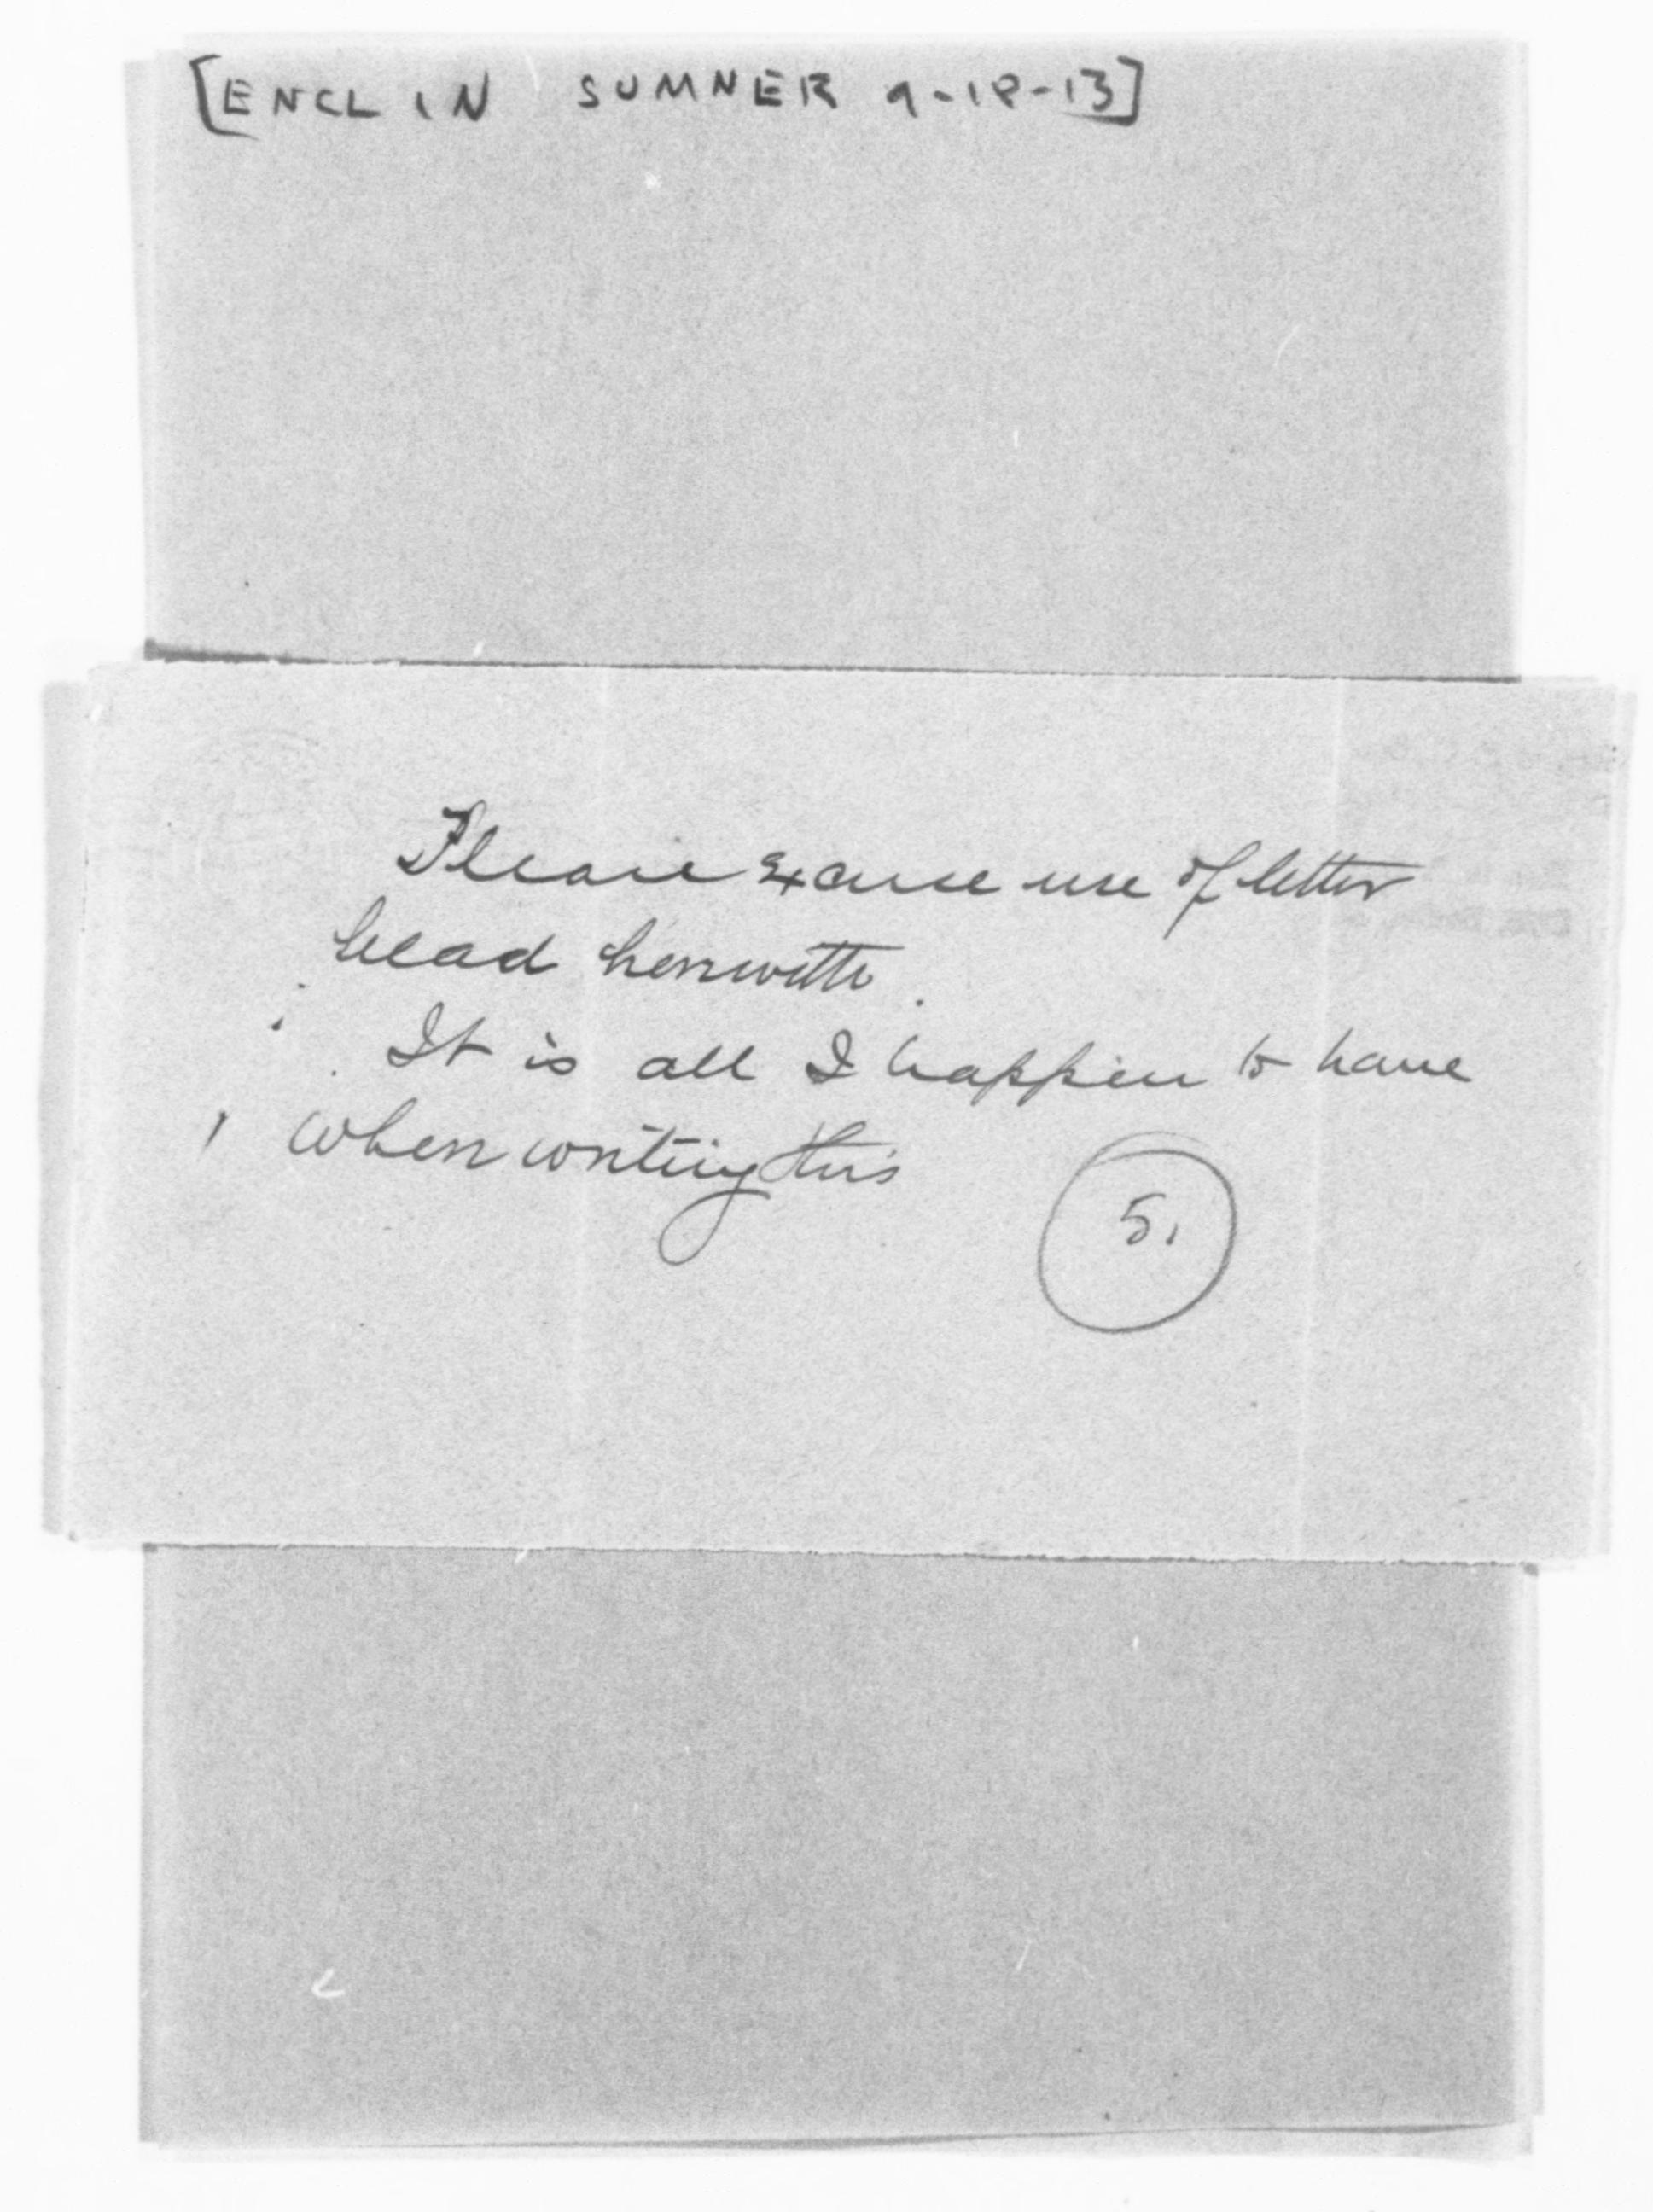 [ENCL IN SUMNER 9-18-13]
Please excuse use of letter
head herewith.
It is all I happen to have
when writing this
5.